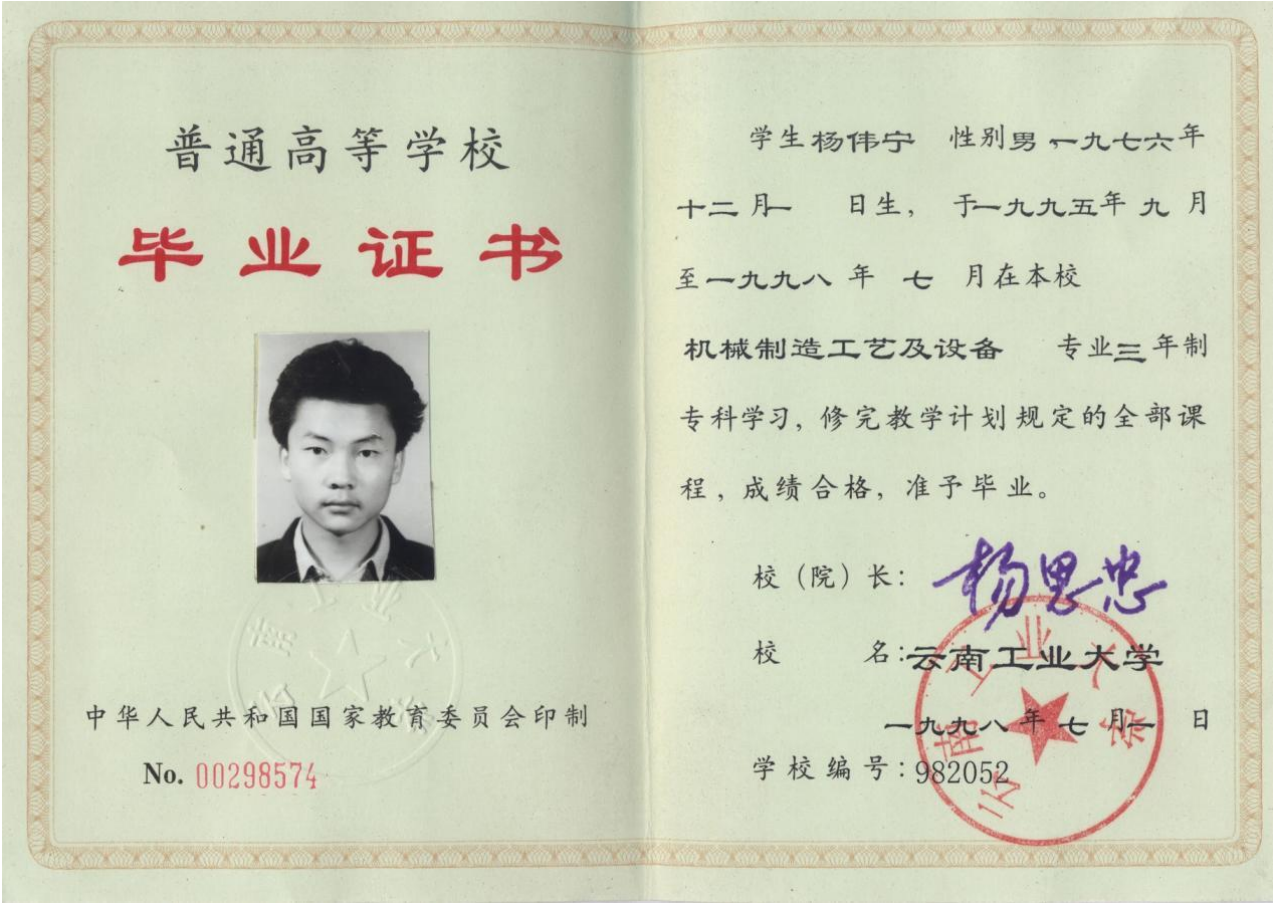 普通高等学校
毕业证书
中华人民共和国国家教育委员会印制
No. 00298574
学生杨伟宁 性别男 一九七六年
十二月一 日生, 于一九九五年九月
至一九九八年 七 月在本校
机械制造工艺及设备 专业三年制
专科学习, 修完教学计划规定的全部课
程, 成绩合格, 准予毕业。
校(院)长: 杨思忠
校 名:云南工业大学
一九九八年七月一 日
学校编号:982052
云南工业大学
云南工业大学